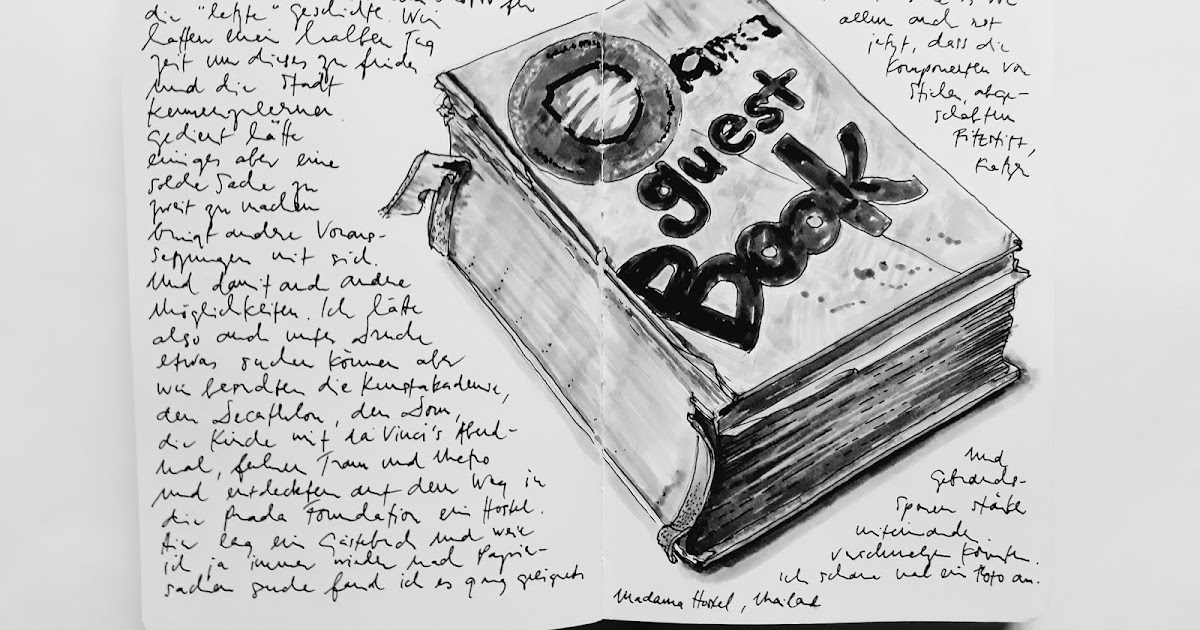 für
die "letzte" Geschichte. Wir
hatten einen halben Tag
Zeit um dieses zu finden
und die Stadt
kennenzulernen.
Gedient hätte
einiges aber eine
solche Sache zu
zweit zu machen
bringt andere Voraus-
setzungen mit sich.
Und damit auch andere
Möglichkeiten. Ich hätte
also auch unter
etwas suchen können aber
wir besuchten die Kunstakademie,
den Decathlon, den Dom,
die Kirche mit da Vinci's Abend-
mal, fuhren Tram und Metro
und entdeckten auf dem Weg in
die Prada Foundation ein Hostel.
Hier lag ein Gästebuch und weil
ich ja immer wieder nach Papier-
sachen suche fand ich es ganz geeignet
guest
Book
allem auch rot
jetzt, dass die
Komponenten von
Sticker, abge-
schabten
Filzstift,
Kratzer
und
Gebrauchs-
spuren stärker
miteinander
verschmelzen könnten.
Ich schaue mal ein Foto an.
Madama Hostel, Mailand